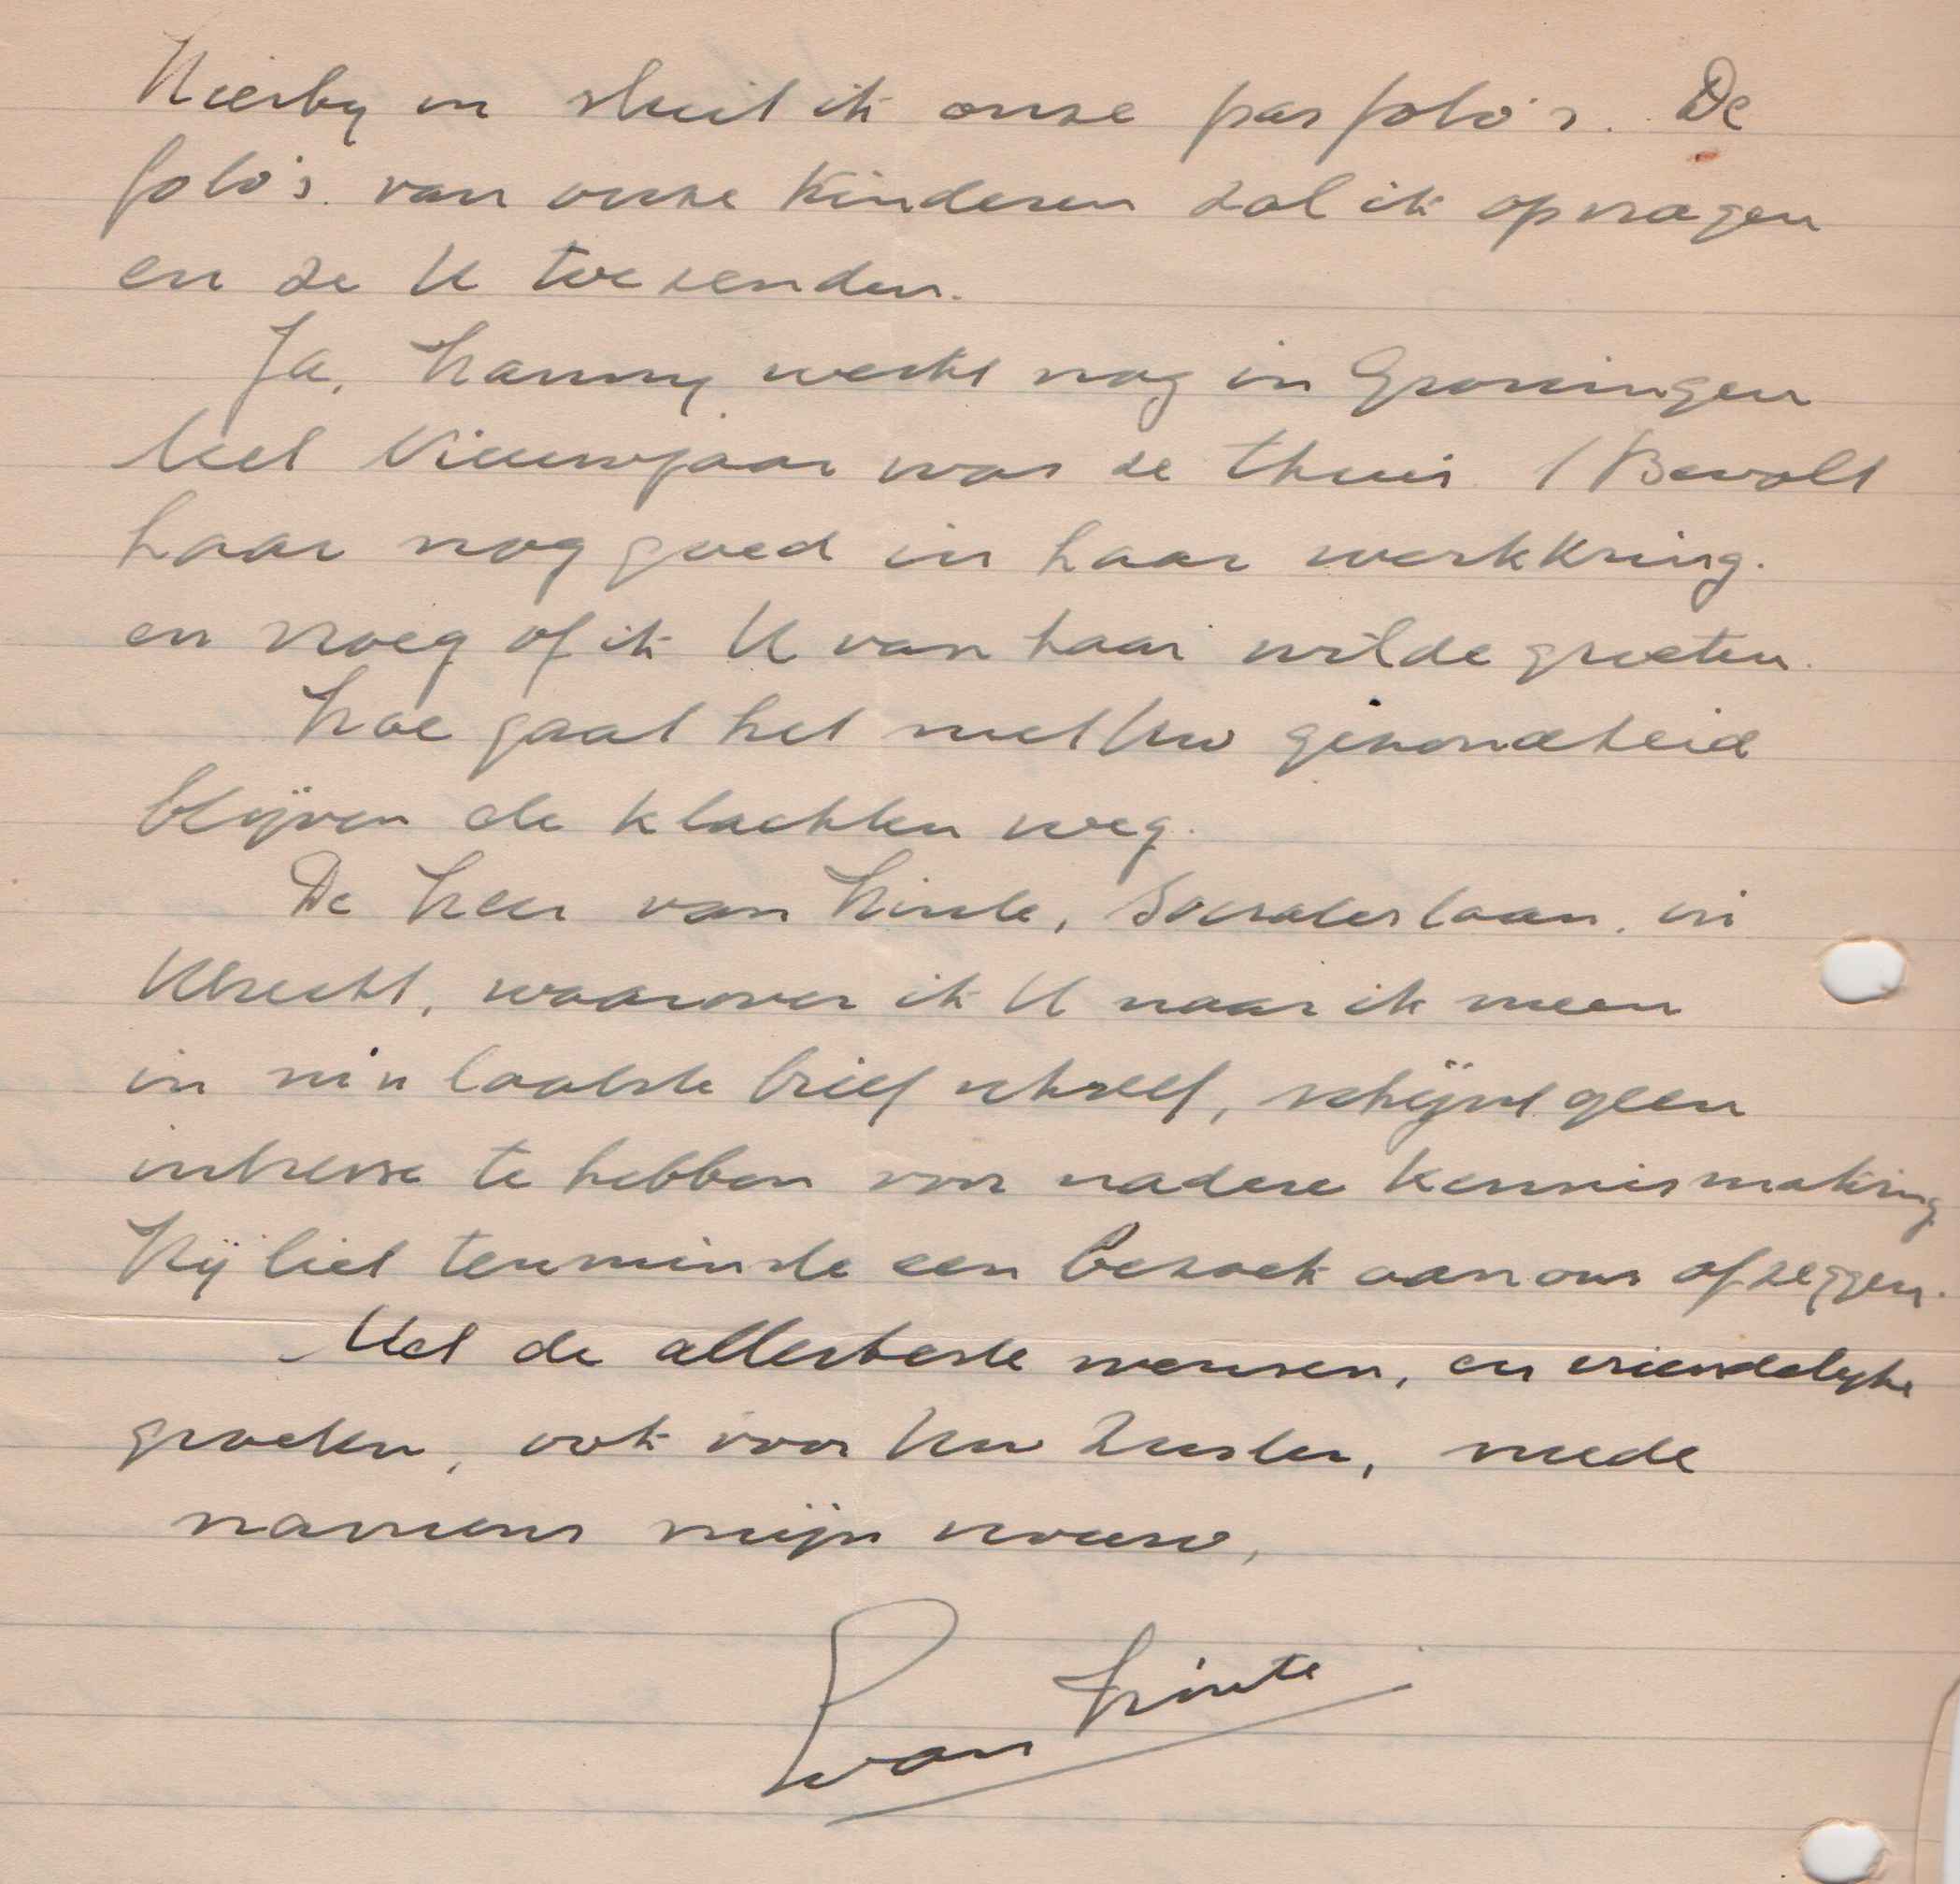 Hierby in sluit ik onze pasfoto's. De
foto's van onze Kinderen zal ik opvragen
en ze U toezenden.
Ja, Hanny werkt nog in Groningen
Met Nieuwjaar was ze thuis. 't Bevalt
haar nog goed in haar werkkring.
en vroeg of ik U van haar wilde groeten.
Hoe gaat het met Uw gezondheid
blijven de klachten weg.
De Heer van Hinte, Socrateslaan, in
Utrecht, waarover ik U naar ik meen
in m'n laatste brief schreef, schijnt geen
intresse te hebben voor nadere Kennismaking
Hij liet tenminste een bezoek aan ons afzeggen.
Met de allerbeste wensen, en vriendelyke
groeten, ook voor Uw Zuster, mede
namens mijn vrouw,
van Hinte